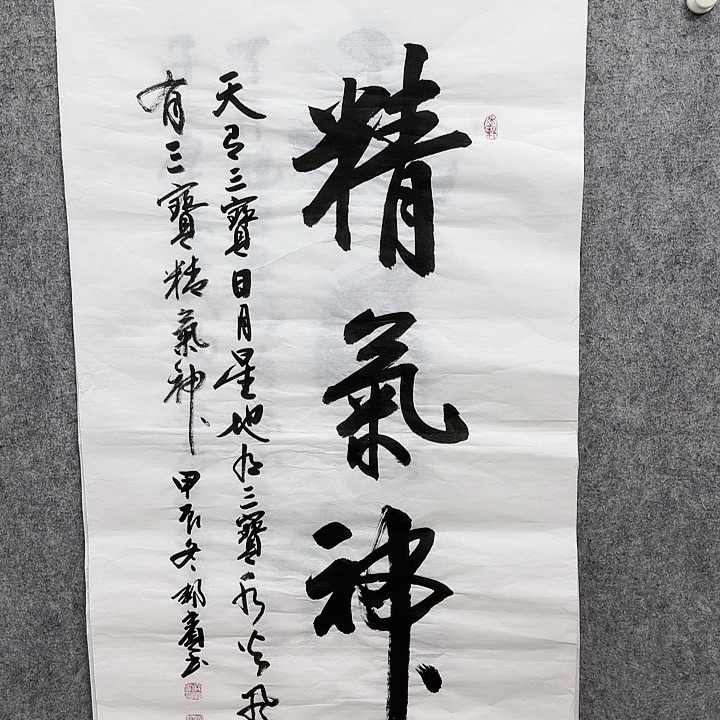 精氣神
天有三寶日月星地有三寶水火風
有三寶精氣神
甲辰冬